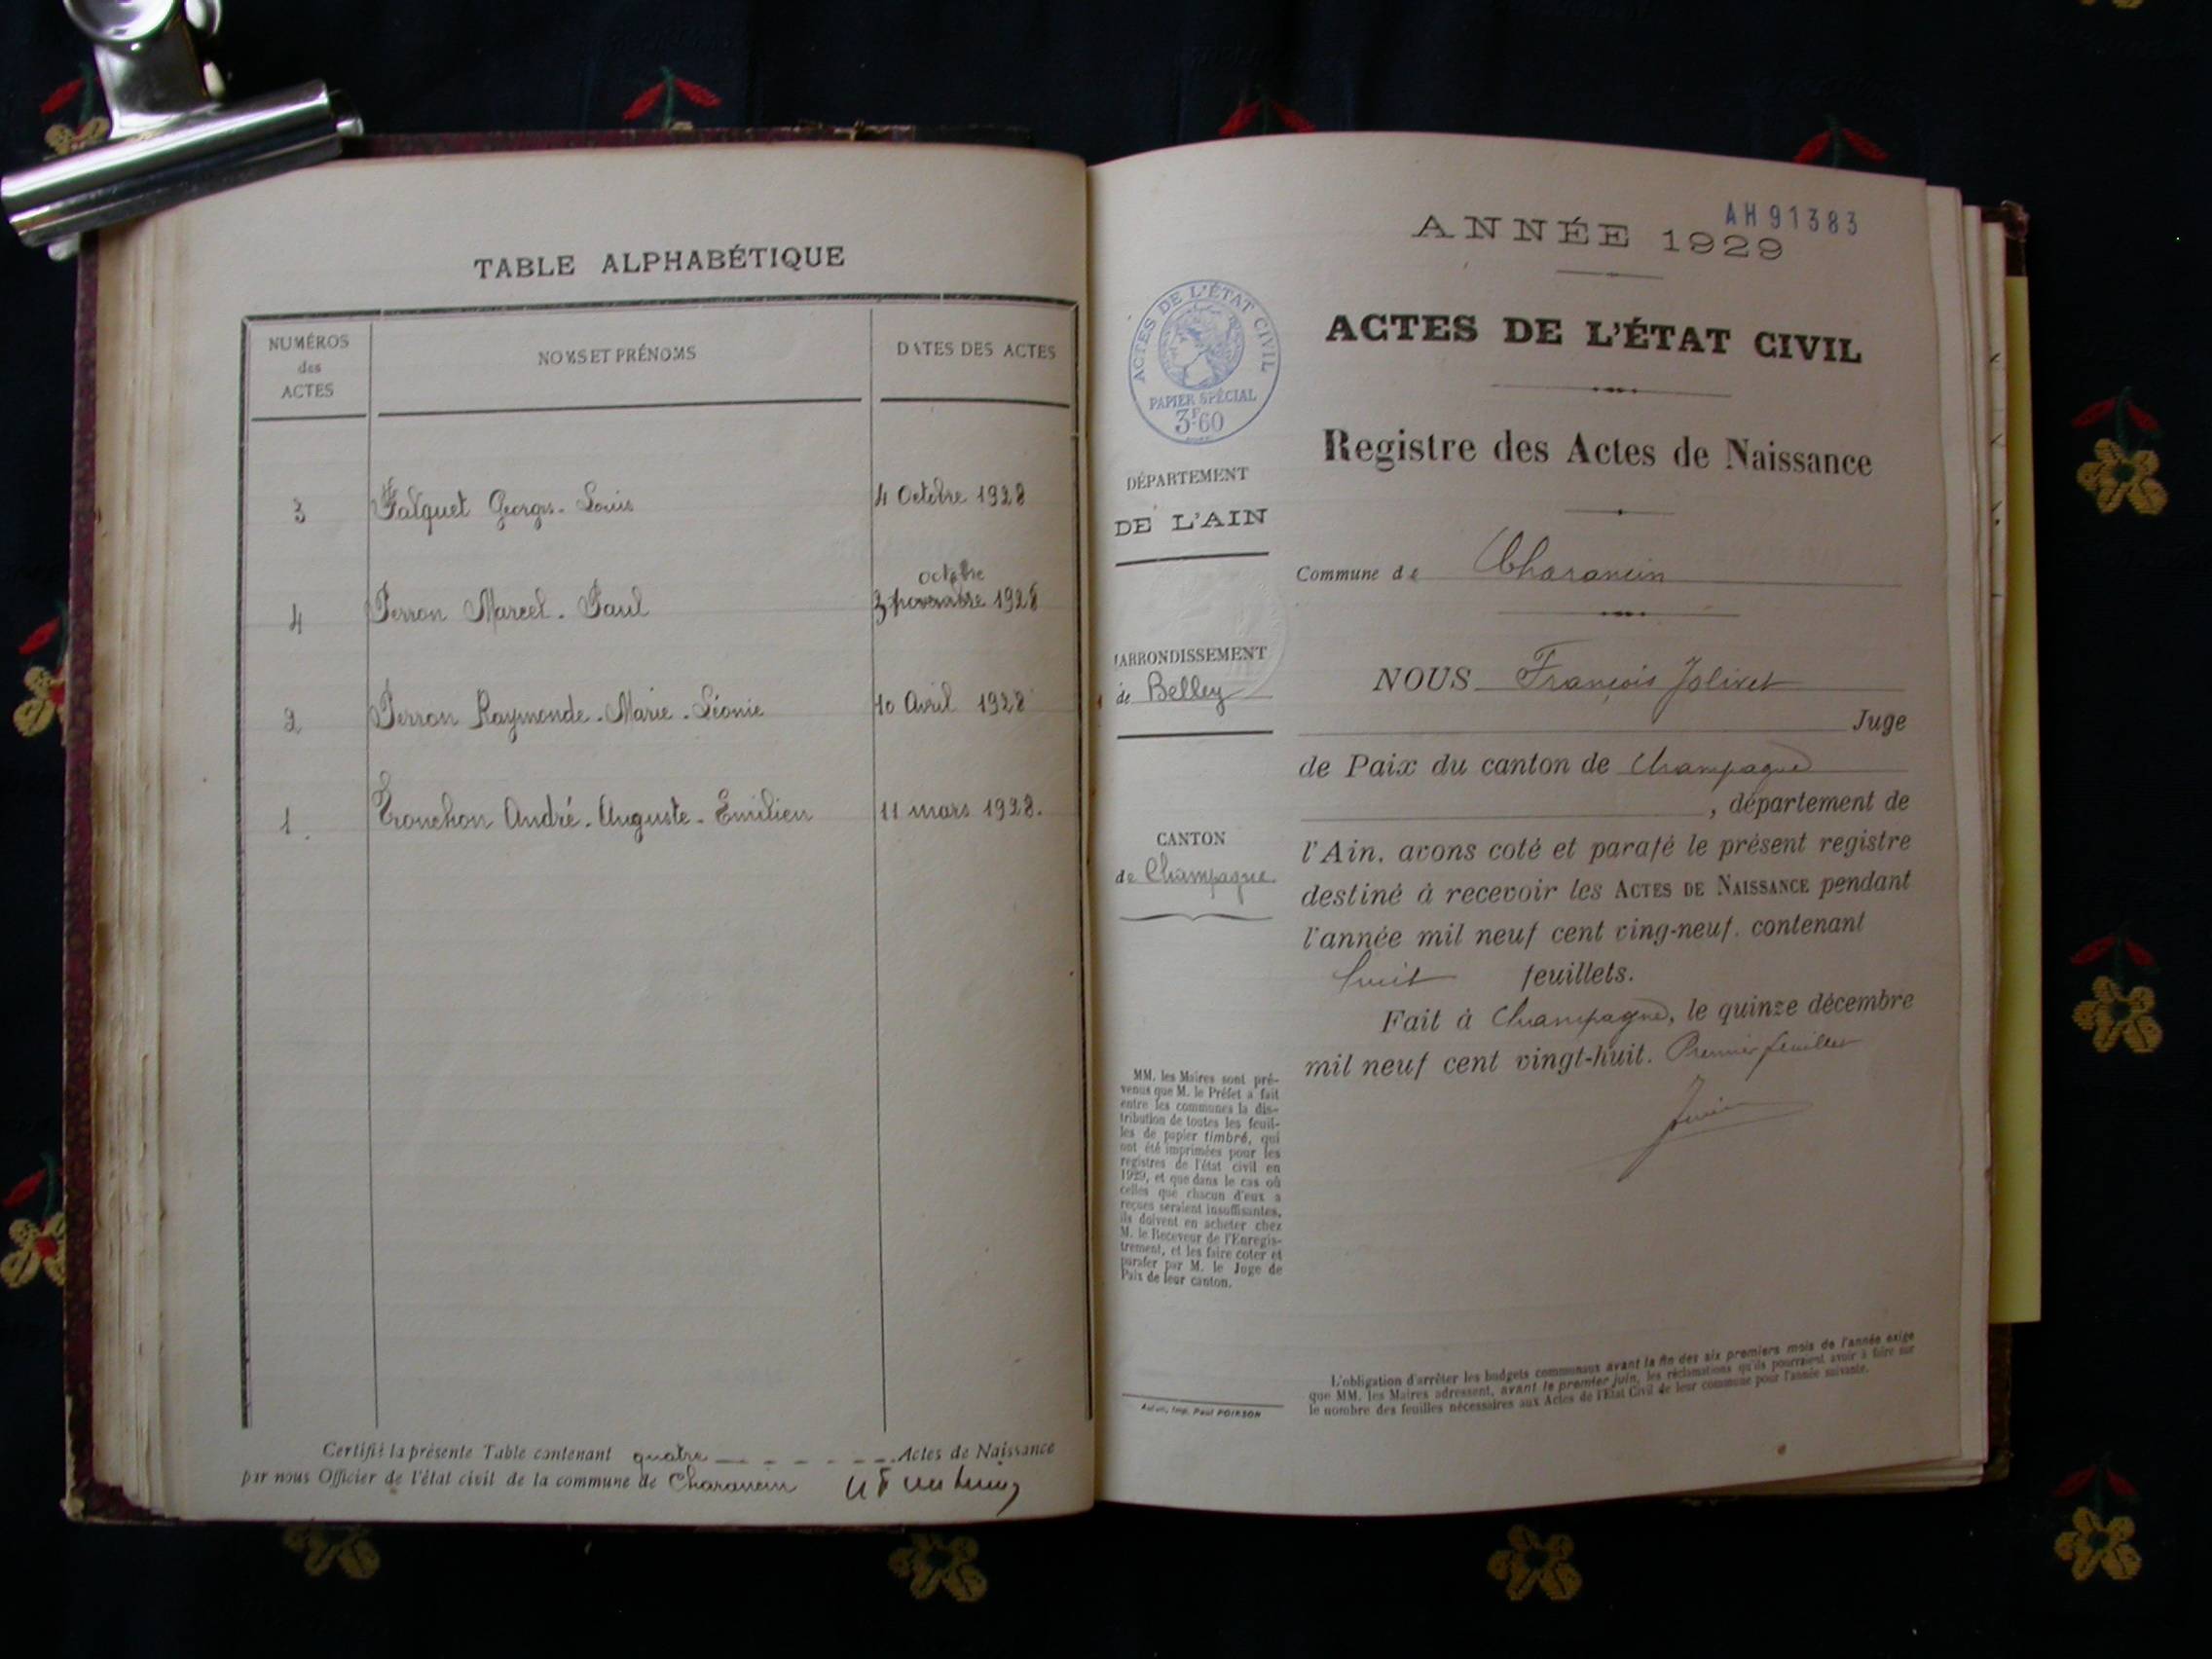 TABLE ALPHABÉTIQUE
NUMÉROS
des
ACTES
NOMS ET PRÉNOMS
DATES DES ACTES
3 Falquet Georges - Louis 4 Octobre 1928
octobre
4 Perron Marcel - Paul 3 novembre 1928
2 Perron Raymonde - Marie - Léonie 10 Avril 1928
1. Tronchon André - Auguste - Emilien 11 mars 1928.
Certifié la présente Table contenant quatre Actes de Naissance
par nous Officier de l'état civil de la commune de Charancin
AH 91383
ANNÉE 1929
ACTES DE L'ÉTAT CIVIL
Registre des Actes de Naissance
Commune de Charancin
NOUS François Jolivet
Juge
de Paix du canton de Champagne
, département de
l'Ain, avons coté et parafé le présent registre
destiné à recevoir les ACTES DE NAISSANCE pendant
l'année mil neuf cent ving-neuf, contenant
huit feuillets.
Fait à Champagne, le quinze décembre
mil neuf cent vingt-huit. Premier feuillet
ACTES DE L'ÉTAT CIVIL
PAPIER SPÉCIAL
3F60
DÉPARTEMENT
DE L'AIN
ARRONDISSEMENT
de Belley
CANTON
de Champagne
MM. les Maires sont pré-
venus que M. le Préfet a fait
entre les communes la dis-
tribution de toutes les feuil-
les de papier timbré, qui
ont été imprimées pour les
registres de l'état civil en
1929, et que dans le cas où
celles que chacun d'eux a
reçues seraient insuffisantes,
ils doivent en acheter chez
M. le Receveur de l'Enregis-
trement, et les faire coter et
parafer par M. le Juge de
Paix de leur canton.
Imp. Paul POIRSON
L'obligation d'arrêter les budgets communaux avant la fin des six premiers mois de l'année exige
que MM. les Maires adressent, avant le premier juin, les réclamations qu'ils pourraient avoir à faire sur
le nombre des feuilles nécessaires aux Actes de l'Etat Civil de leur commune pour l'année suivante.